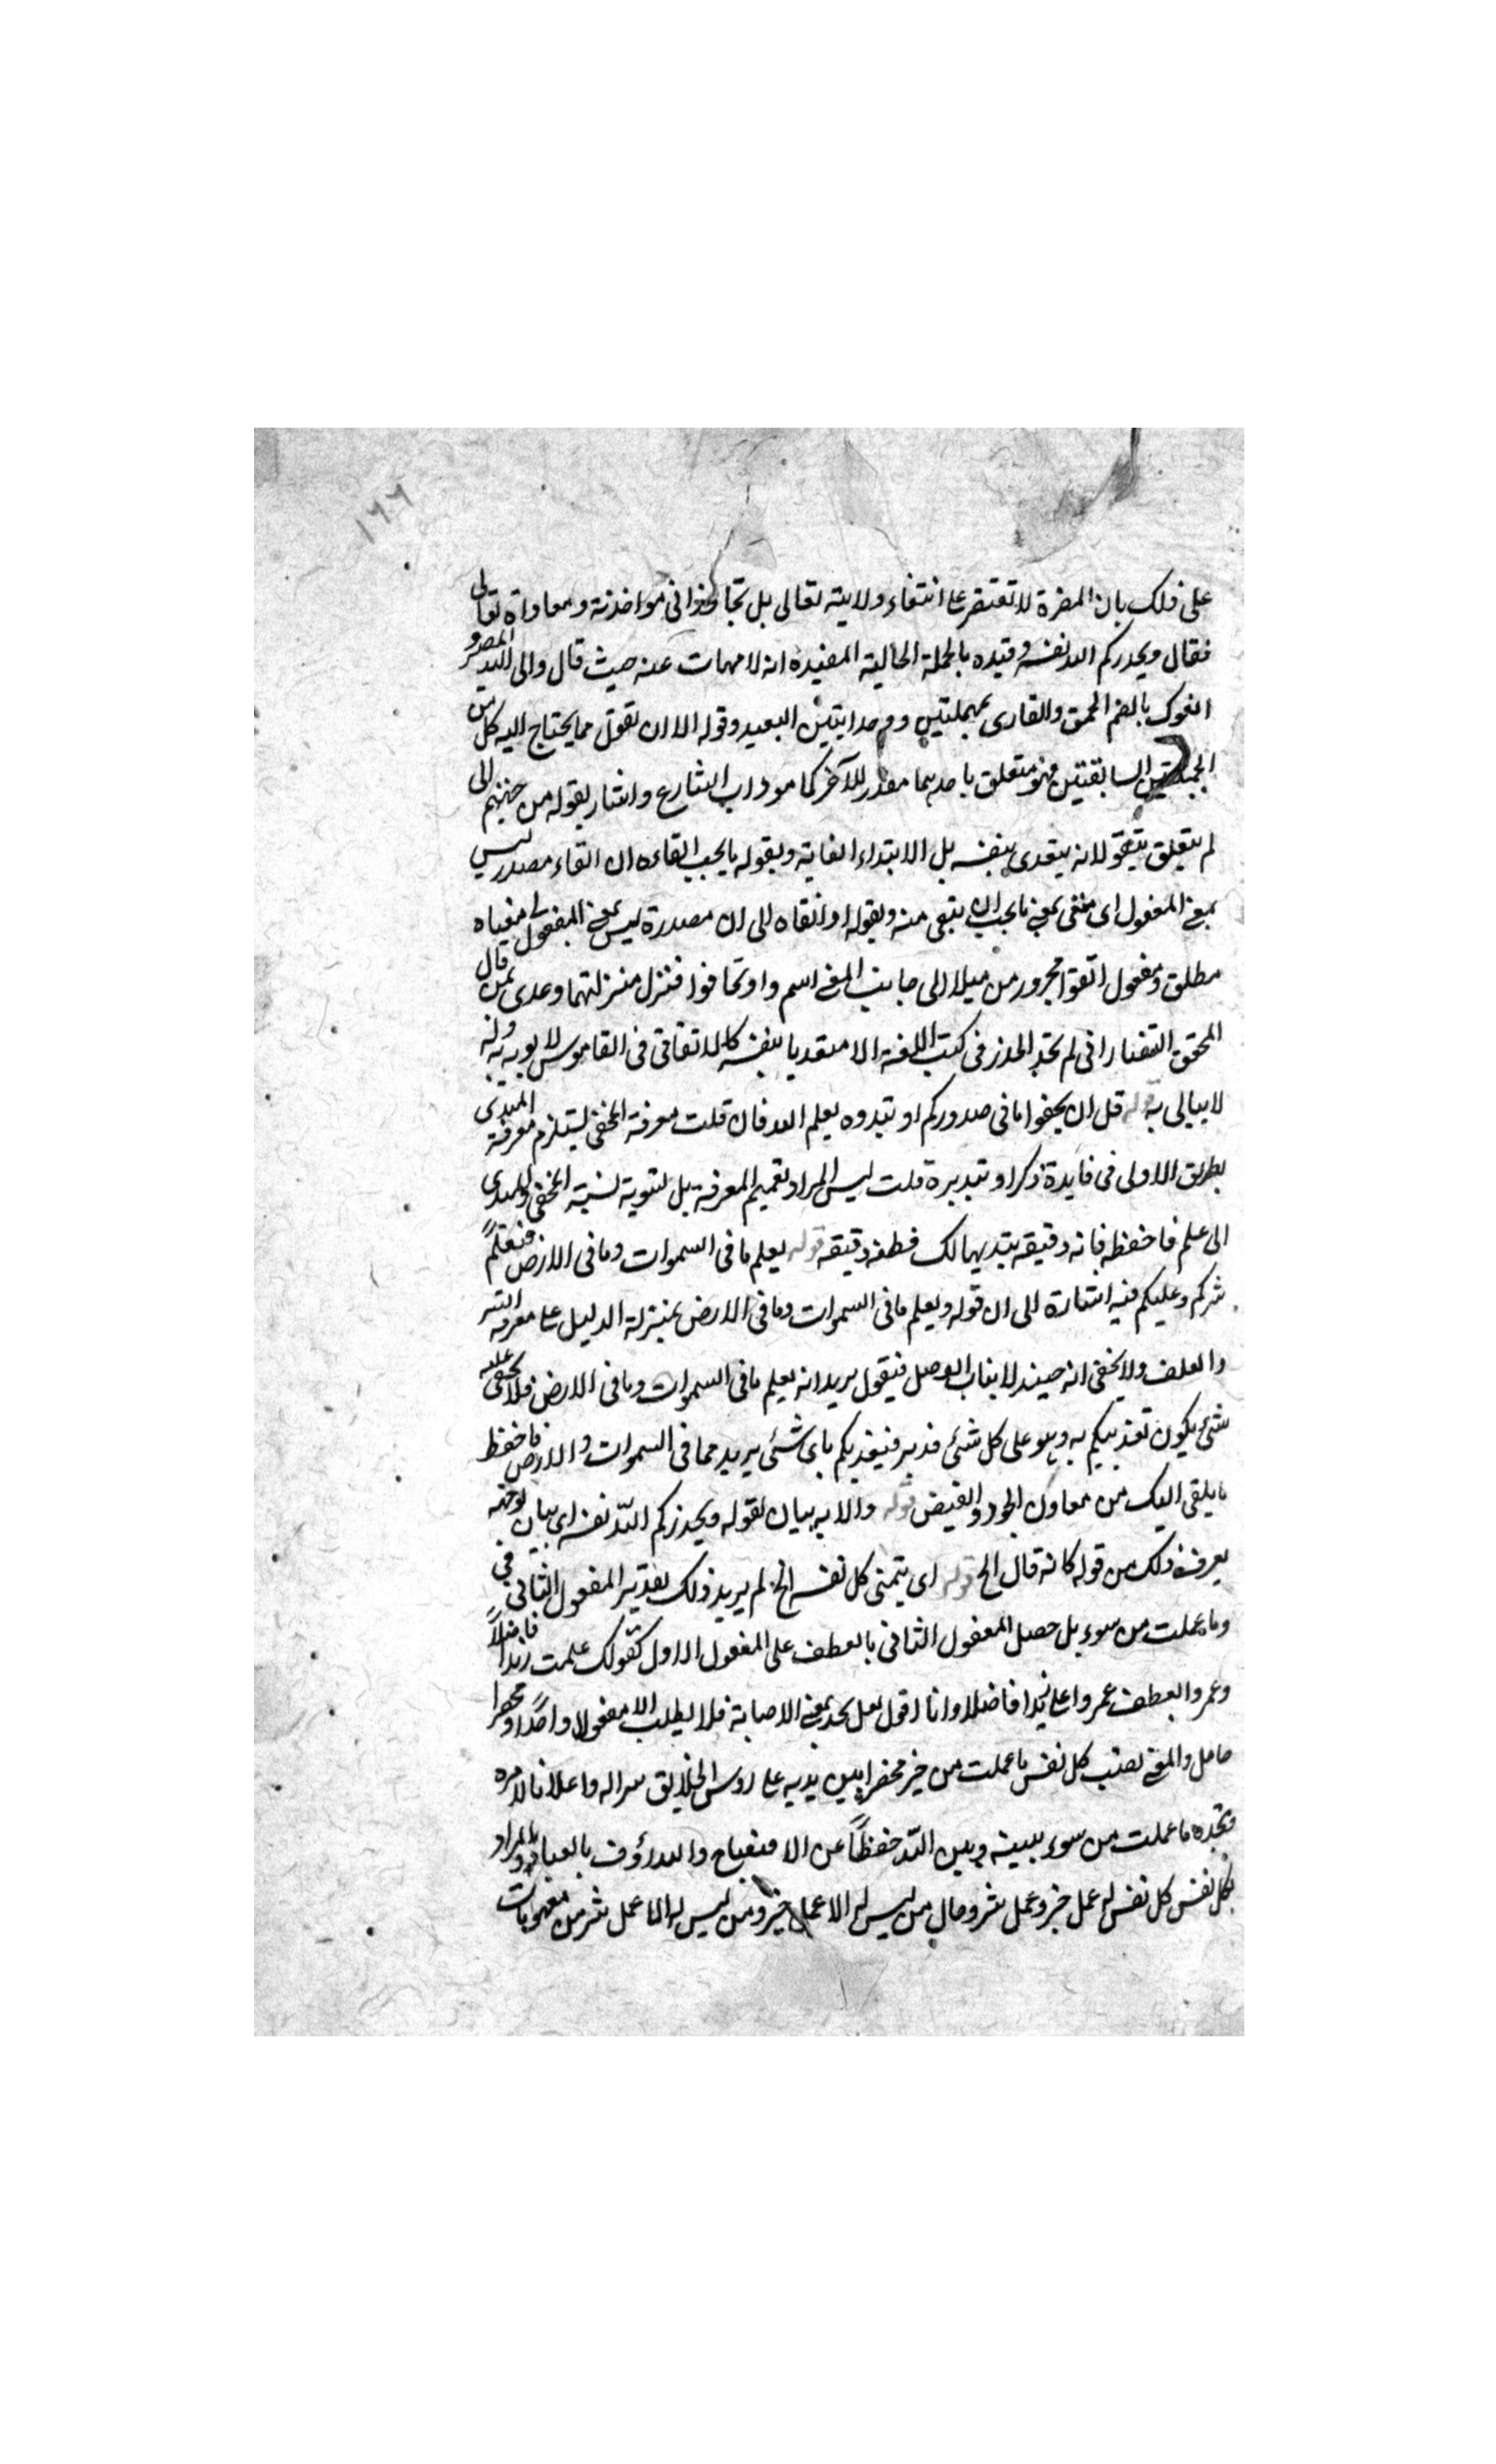 ١٦٦
على ذلك بان المضرة لا تقتصر على انتفاء ولايته تعالى بل تجاوزوا في مواخذته ومعاداة تعالى
فقال ويحذركم الله نفسه وقيده بالجملة الحالية المفيدة انه لا مهات عنه حيث قال والى الله المصير و
النوك بالضم الحمق والقارى بمهملتين البعيد وقوله الا ان تقول مما يحتاج اليه كل من
الجملتين السابقتين فهو متعلق باحديهما مقدر للآخر كما هو داب الشارع واشار بقوله من جهتهم الى
لم يتعلق بتتقو لانه يتعدى بنفسه بل الابتداء الغاية وبقوله ما يجب اتقاءه ان اتقاء مصدر ليس
بمعنى المفعول اى متقى بمعنى ما يجب ان يتقى منه وبقوله او اتقاه الى ان مصدرة ليس بمعنى المفعول
مطلق ومفعول اتقوا مجرور من ميلا الى جانب المعنى اسم واو تخافوا فنزل منزلتهما وعدى بمن قال
المحقق التفتازانى لم نجد الحذر فى كتب اللغة الا متعديا بنفسه كالاتقاء فى القاموس لا يوبه به وله
لا يبالى به قوله قل ان تخفوا ما فى صدوركم او تبدوه يعلم الله فان قلت معرفة المخفى ليستلزم معرفة المبدى
بطريق الاولى فى فايدة ذكر او تبديره قلت ليس المراد تعميم المعرفة بل لتسوية نسبة المخفى والمبدى
الى علم فاحفظه فانه دقيقه يتديهالك فطنه دقيقه قوله يعلم ما فى السموات وما فى الارض فيعلم
شركم وعليكم فيه اشارة الى ان قوله ويعلم ما فى السموات وما فى الارض بمنزلة الدليل على معرفة السر
والعلن ولا يخفى انه حينئذ لا يناب الوصل فيقول يريد انه يعلم ما فى السموات وما فى الارض فلا يخفى عليه
شئ يكون تعذيبكم به وهو على كل شئ قدير فيعذبكم باى شئ يريد مما فى السموات والارض فاحفظ
ما يلقى اليك من معاون الجود والفيض قوله والاية بيان لقوله ويحذركم الله نفسه اى بيان لوجه
يعرف ذلك من قوله كانه قال الخ قوله اى يتمنى كل نفس الخ لم يريد ذلك بقدير المفعول الثانى فى
وما عملت من سوء بل حصل المفعول الثانى بالعطف على المفعول الاول كقولك علمت زيدا فاضلا
وعمروا بعطف عمروا على زيدا فاضلا وانا اقول لعل يجد بمعنى الاصابة فلا يطلب الا مفعولا واحدا ومحضرا
حامل والمعنى تصيب كل نفس ما عملت من خير محضرا بين يديه على روس الخلايق سراله واعلانا لامره
وتجده ما عملت من سوء بينه وبين الله حفظا عن الافتضاح والله رؤف بالعباد والمراد
بكل نفس كل نفس له عمل خير وعمل شر وحال من ليس له الا عمل خير ومن ليس له الا عمل شر من مفهومات